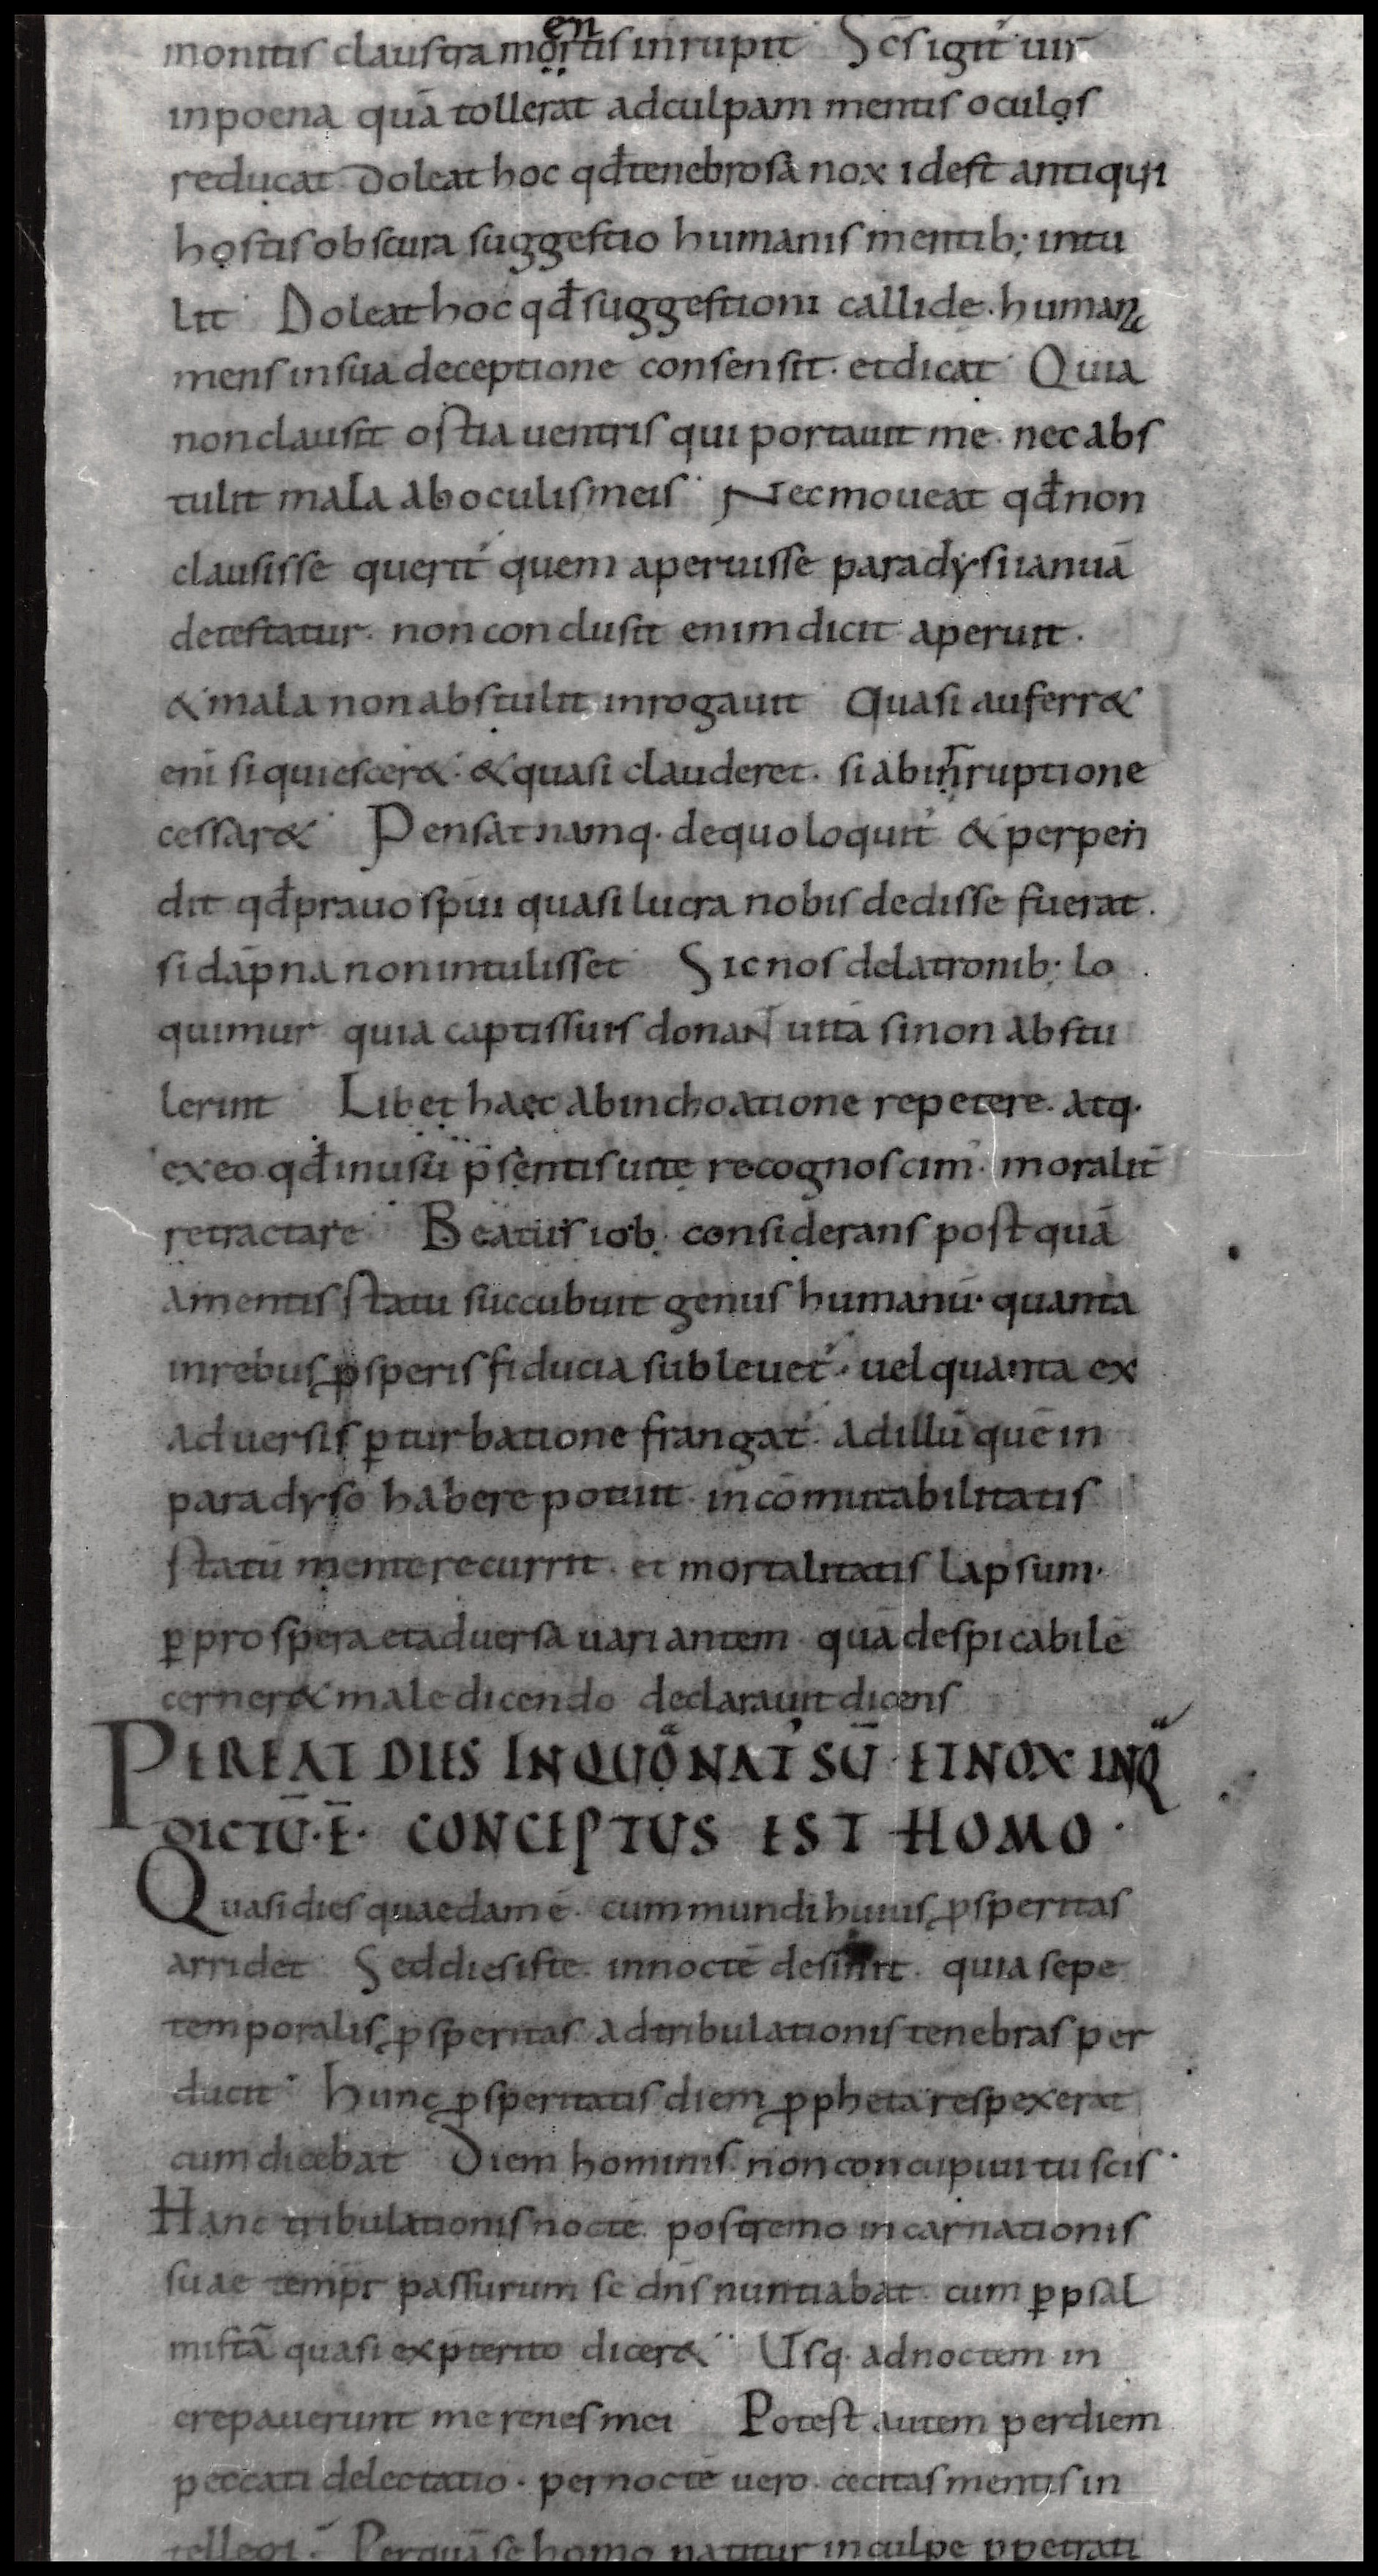 monitis claustra mortis inrupit Sc̄s igit᷎ uir
en
inpoena quā tollerat adculpam mentis oculos
reducat Doleat hoc qđ tenebrosa nox idest antiqui
hostis obscura suggestio humanis mentib; intu
lit Doleat hoc qđ suggestioni callidę · humanę
mens insua deceptione consensit · etdicat Quia
nonclausit ostia uentris qui portauit me · necabs
tulit mala aboculismeis Necmoueat qđ non
clausisse querit᷎ quem aperuisse paradysi ianuā
detestatur · nonconclusit enimdicit aperuit ·
& mala nonabstulit inrogauit Quasi auferr&
eni᷎ siquiescer& · & quasi clauderet · siabinrruptione
cessar& Pensat namq· dequo loquit᷎ & perpen
dit qđ prauo spūi quasi lucra nobis dedisse fuerat ·
si dāpna nonintulisset Sic nos delatronib; lo
quimur quia captis suis donant uitā sinon abstu
lerint Libet haec abinchoatione repetere · atq·
exeo qđ inusū p̄sentis uitę recognoscim᷎ · moralit̄
retractare Beatus iob considerans postquā
amentis statu succubuit genus humanū · quanta
inrebus ꝓsperis fiducia subleuet᷎ · uel quanta ex
aduersis ꝑturbatione frangat᷎ · adillū quē in
paradyso habere potuit · incōmutabilitatis
statū mente recurrit · et mortalitatis lapsum ·
ꝑ prospera etaduersa uariantem · quā despicabilē
cerner& maledicendo declarauit dicens
PEREAT DIES IN QUO NAT᷎ SŪ · ET NOX IN Q
DICTŪ · Ē · CONCEPTUS EST HOMO ·
Quasi dies quaedam ē · cum mundi huius ꝓsperitas
arridet Sed dies iste · innoctē desinit · quia sepe
temporalis ꝓsperitas adtribulationis tenebras per
ducit Hunc ꝓsperitatis diem ꝓpheta respexerat
cum dicebat Diem hominis non concupiui tu scis ·
Hanc tribulationis noctē · postremo incarnationis
suae tempr̄ passurum se dn̄s nuntiabat · cum ꝑ psal
mistā quasi exp̄terito dicer& Usq· adnoctem in
crepauerunt me renes mei Potest autem perdiem
peccati delectatio · pernoctē uero · cecitas mentis in
tellegi · Perquā se homo patitur inculpę ꝑpetrati